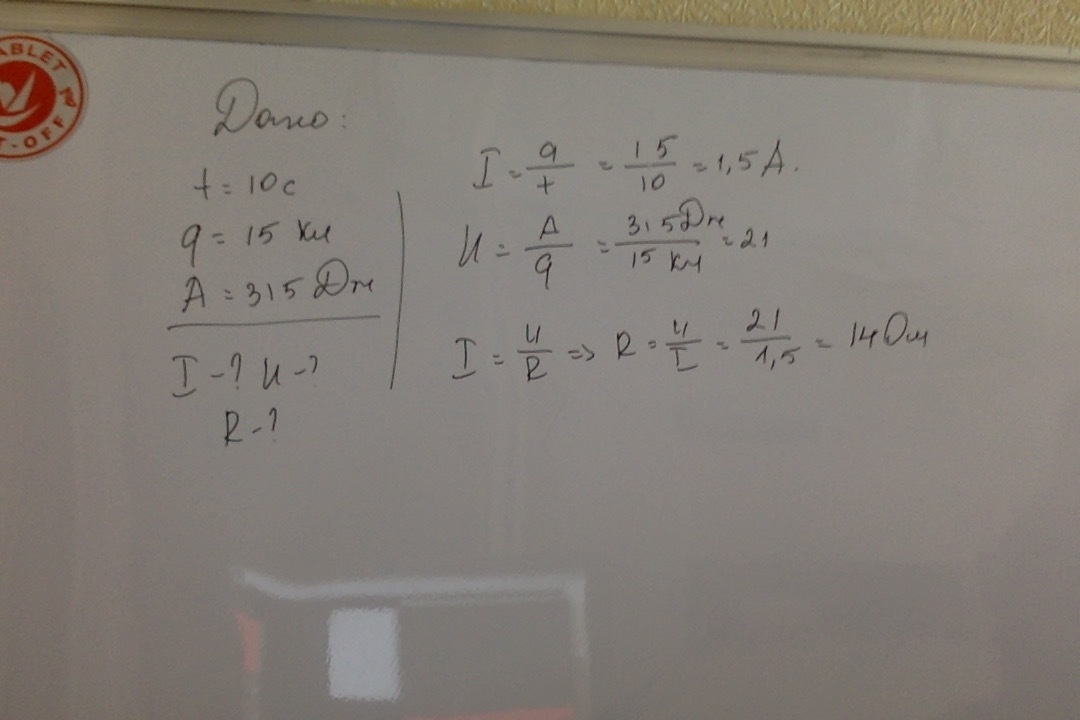 ABLET
T-OFF
Дано:
t = 10 с
q = 15 Кл
A = 315 Дж
I - ? U - ?
R - ?
I = q/t = 15/10 = 1,5 A.
U = A/q = 315 Дж/15 Кл = 21
I = U/R => R = U/I = 21/1,5 = 14 Ом